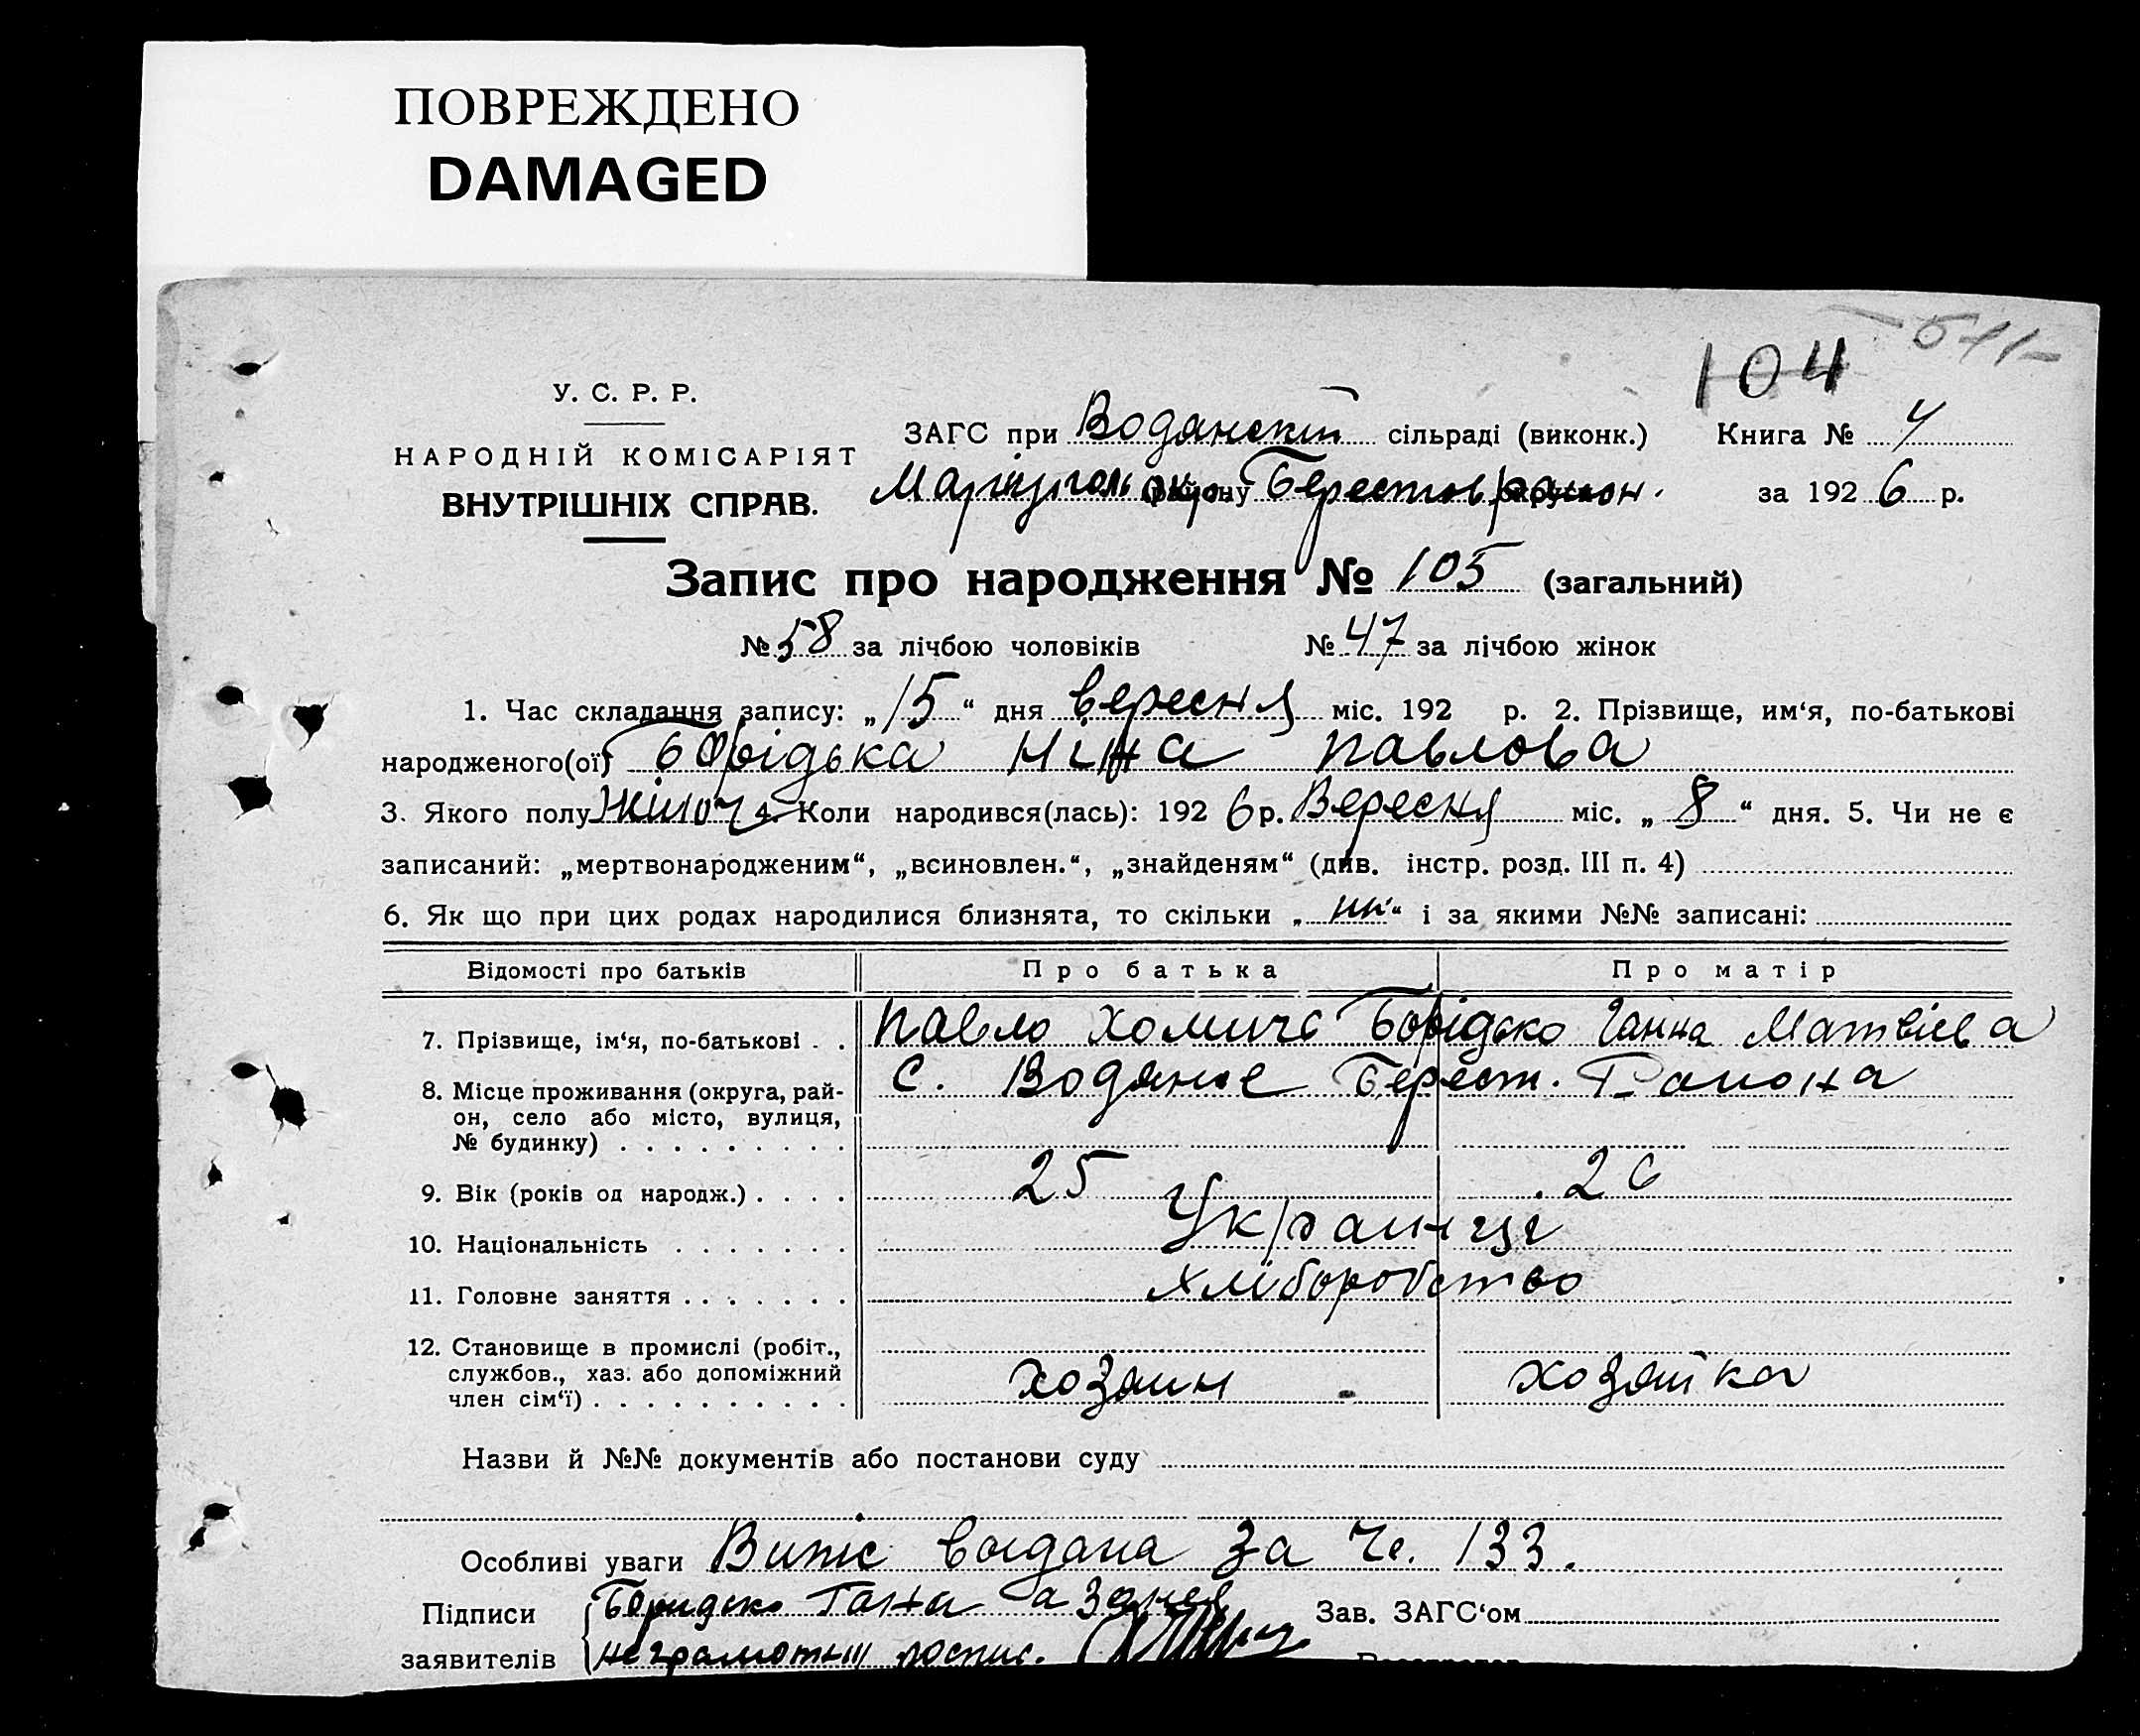 ПОВРЕЖДЕНО
DAMAGED
-511-
104
У. С. Р. Р.
НАРОДНІЙ КОМІСАРІЯТ
ВНУТРІШНІХ СПРАВ.
ЗАГС при Водянскій сільраді (виконк.) Книга № 4
Маріупол окр. району Берестов район. за 1926 р.
Запис про народження № 105 (загальний)
№ 58 за лічбою чоловіків № 47 за лічбою жінок
1. Час складання запису: „15“ дня вересня міс. 192 р. 2. Прізвище, им‘я, по-батькові
народженого(ої) Борідька Ніна Павлова
3. Якого полу жіноч 4. Коли народився(лась): 1926 р. Вересня міс. „8“ дня. 5. Чи не є
записаний: „мертвонародженим“, „всиновлен.“, „знайденям“ (див. інстр. розд. III п. 4)
6. Як що при цих родах народилися близнята, то скільки „ни“ і за якими №№ записані:
Відомості про батьків Про батька Про матір
7. Прізвище, ім‘я, по-батькові . . Павло Хомичь Борідько Ганна Матвієва
8. Місце проживання (округа, рай- с. Водяне Берест. Району
он, село або місто, вулиця,
№ будинку) . . . . . . . . .
9. Вік (років од народж.) . . . . 25 26
10. Національність . . . . . . . Українци
11. Головне заняття . . . . . . . хліборобство
12. Становище в промислі (робіт.,
службов., хаз. або допоміжний хозяин хозяйка
член сім‘ї) . . . . . . . . . .
Назви й №№ документів або постанови суду
Особливі уваги Випіс выдана за Че. 133.
Підписи Боридько Гана а за нея Зав. ЗАГС‘ом
заявителів неграмотн роспис.